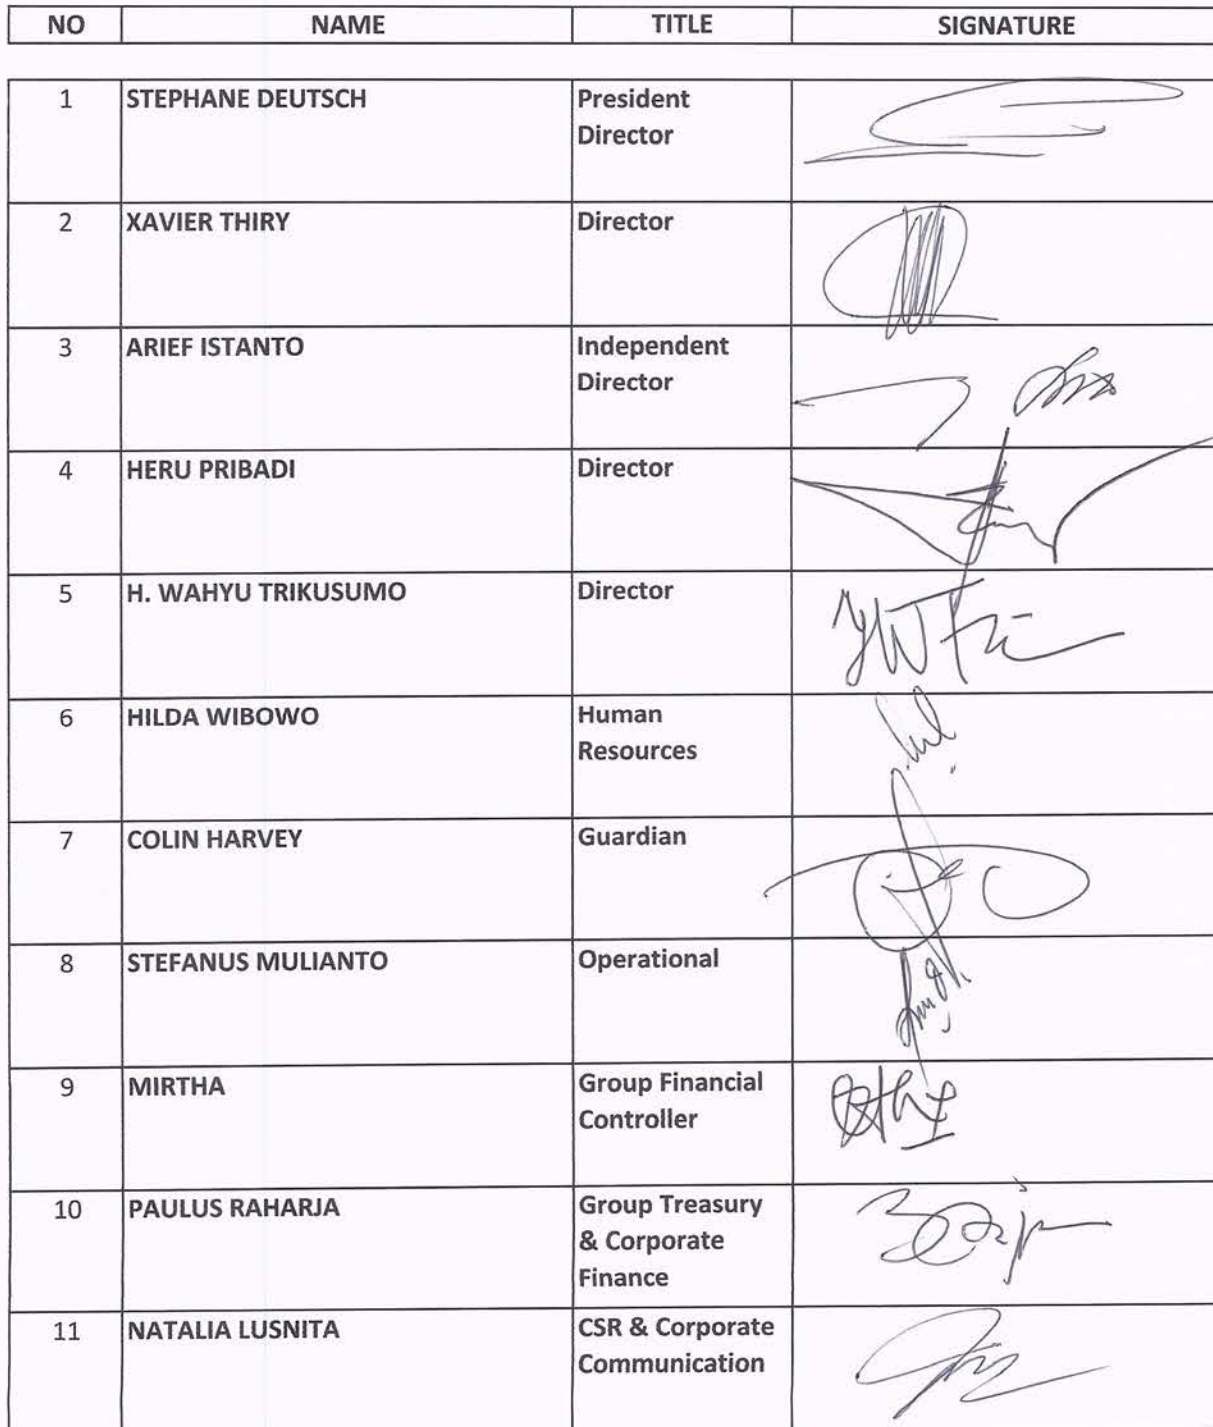 NO NAME TITLE SIGNATURE
1 STEPHANE DEUTSCH President
Director
2 XAVIER THIRY Director
3 ARIEF ISTANTO Independent
Director
4 HERU PRIBADI Director
5 H. WAHYU TRIKUSUMO Director
6 HILDA WIBOWO Human
Resources
7 COLIN HARVEY Guardian
8 STEFANUS MULIANTO Operational
9 MIRTHA Group Financial
Controller
10 PAULUS RAHARJA Group Treasury
& Corporate
Finance
11 NATALIA LUSNITA CSR & Corporate
Communication